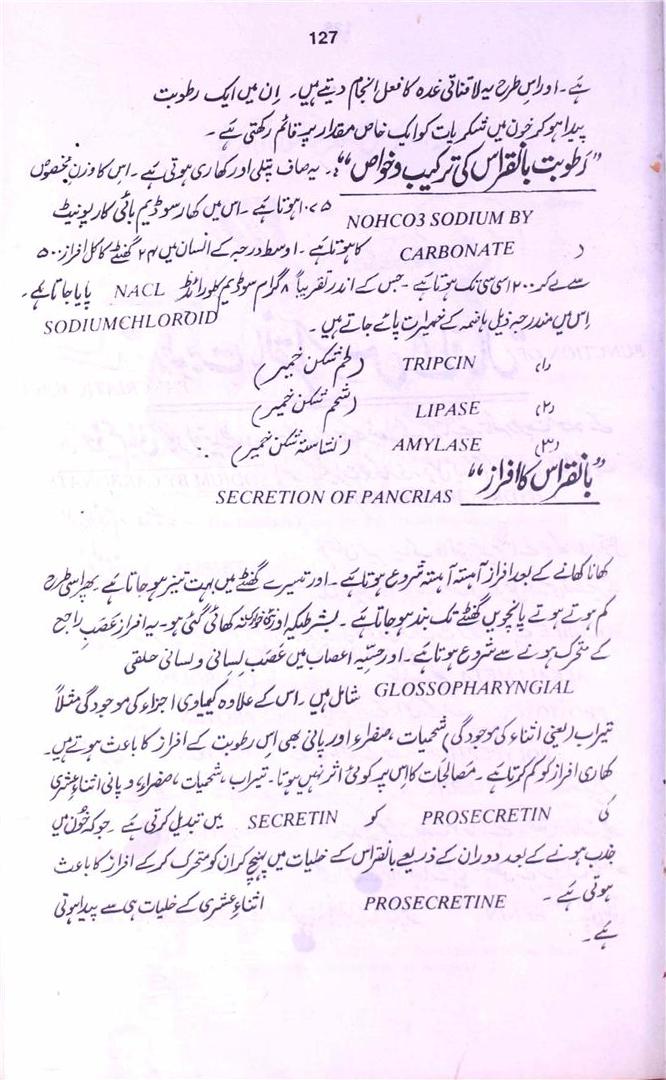 127
ہے۔ اور اس طرح یہ لا قناتی غدہ کا فعل انجام دیتے ہیں۔ اِن میں ایک رطوبت
پیدا ہو کر خون میں شکریات کو ایک خاص مقدار پر قائم رکھتی ہے۔
”رطوبت بانقراس کی ترکیب و خواص“۔ یہ صاف پتلی اور کھاری ہوتی ہے۔ اس کا وزنِ مخصوص
۱۰۷۵ ہوتا ہے۔ اس میں کھار سوڈیم بائی کاربونیٹ NOHCO3 SODIUM BY
CARBONATE کا ہوتا ہے۔ اوسط درجہ کے انسان میں ۲۴ گھنٹے کا کل افراز ۵۰۰
سے لے کر ۲۰۰ سی سی تک ہوتا ہے۔ جس کے اندر تقریباً ۸ گرام سوڈیم کلورائڈ NACL پایا جاتا ہے۔
SODIUMCHLOROID اس میں مندرجہ ذیل ہاضمہ کے خمیرات پائے جاتے ہیں۔
(۱) TRIPCIN (لحم شکن خمیر)
(۲) LIPASE (شحم شکن خمیر)
(۳) AMYLASE (نشاستہ شکن خمیر)
”بانقراس کا افراز“ SECRETION OF PANCRIAS
کھانا کھانے کے بعد افراز آہستہ آہستہ شروع ہوتا ہے۔ اور تیسرے گھنٹے میں بہت تیز ہو جاتا ہے پھر اسی طرح
کم ہوتے ہوتے پانچویں گھنٹے تک بند ہو جاتا ہے۔ بشرطیکہ اور کھائی گئی ہو۔ یہ افراز عَصَبِ راجع
کے متحرک ہونے سے شروع ہوتا ہے۔ اور حسّیہ اعصاب میں عَصَبِ لسانی و لسانی حلقی
GLOSSOPHARYNGIAL شامل ہیں۔ اس کے علاوہ کیمیاوی اجزاء کی موجودگی مثلاً
تیزاب (یعنی اثناء کی موجودگی) شحمیات، صفراء اور پانی بھی اس رطوبت کے افراز کا باعث ہوتے ہیں۔
کھاری افراز کو کم کرتا ہے۔ مَصالجات کا اس پر کوئی اثر نہیں ہوتا۔ تیزاب، شحمیات، صفراء، و پانی اثناء عشری
کی PROSECRETIN کو SECRETIN میں تبدیل کرتی ہے۔ جو کہ خون میں
جذب ہونے کے بعد دوران کے ذریعے بانقراس کے خلیات میں پہنچ کر ان کو متحرک کر کے افراز کا باعث
ہوتی ہے۔ PROSECRETINE اثناء عشری کے خلیات ہی سے پیدا ہوتی
ہے۔